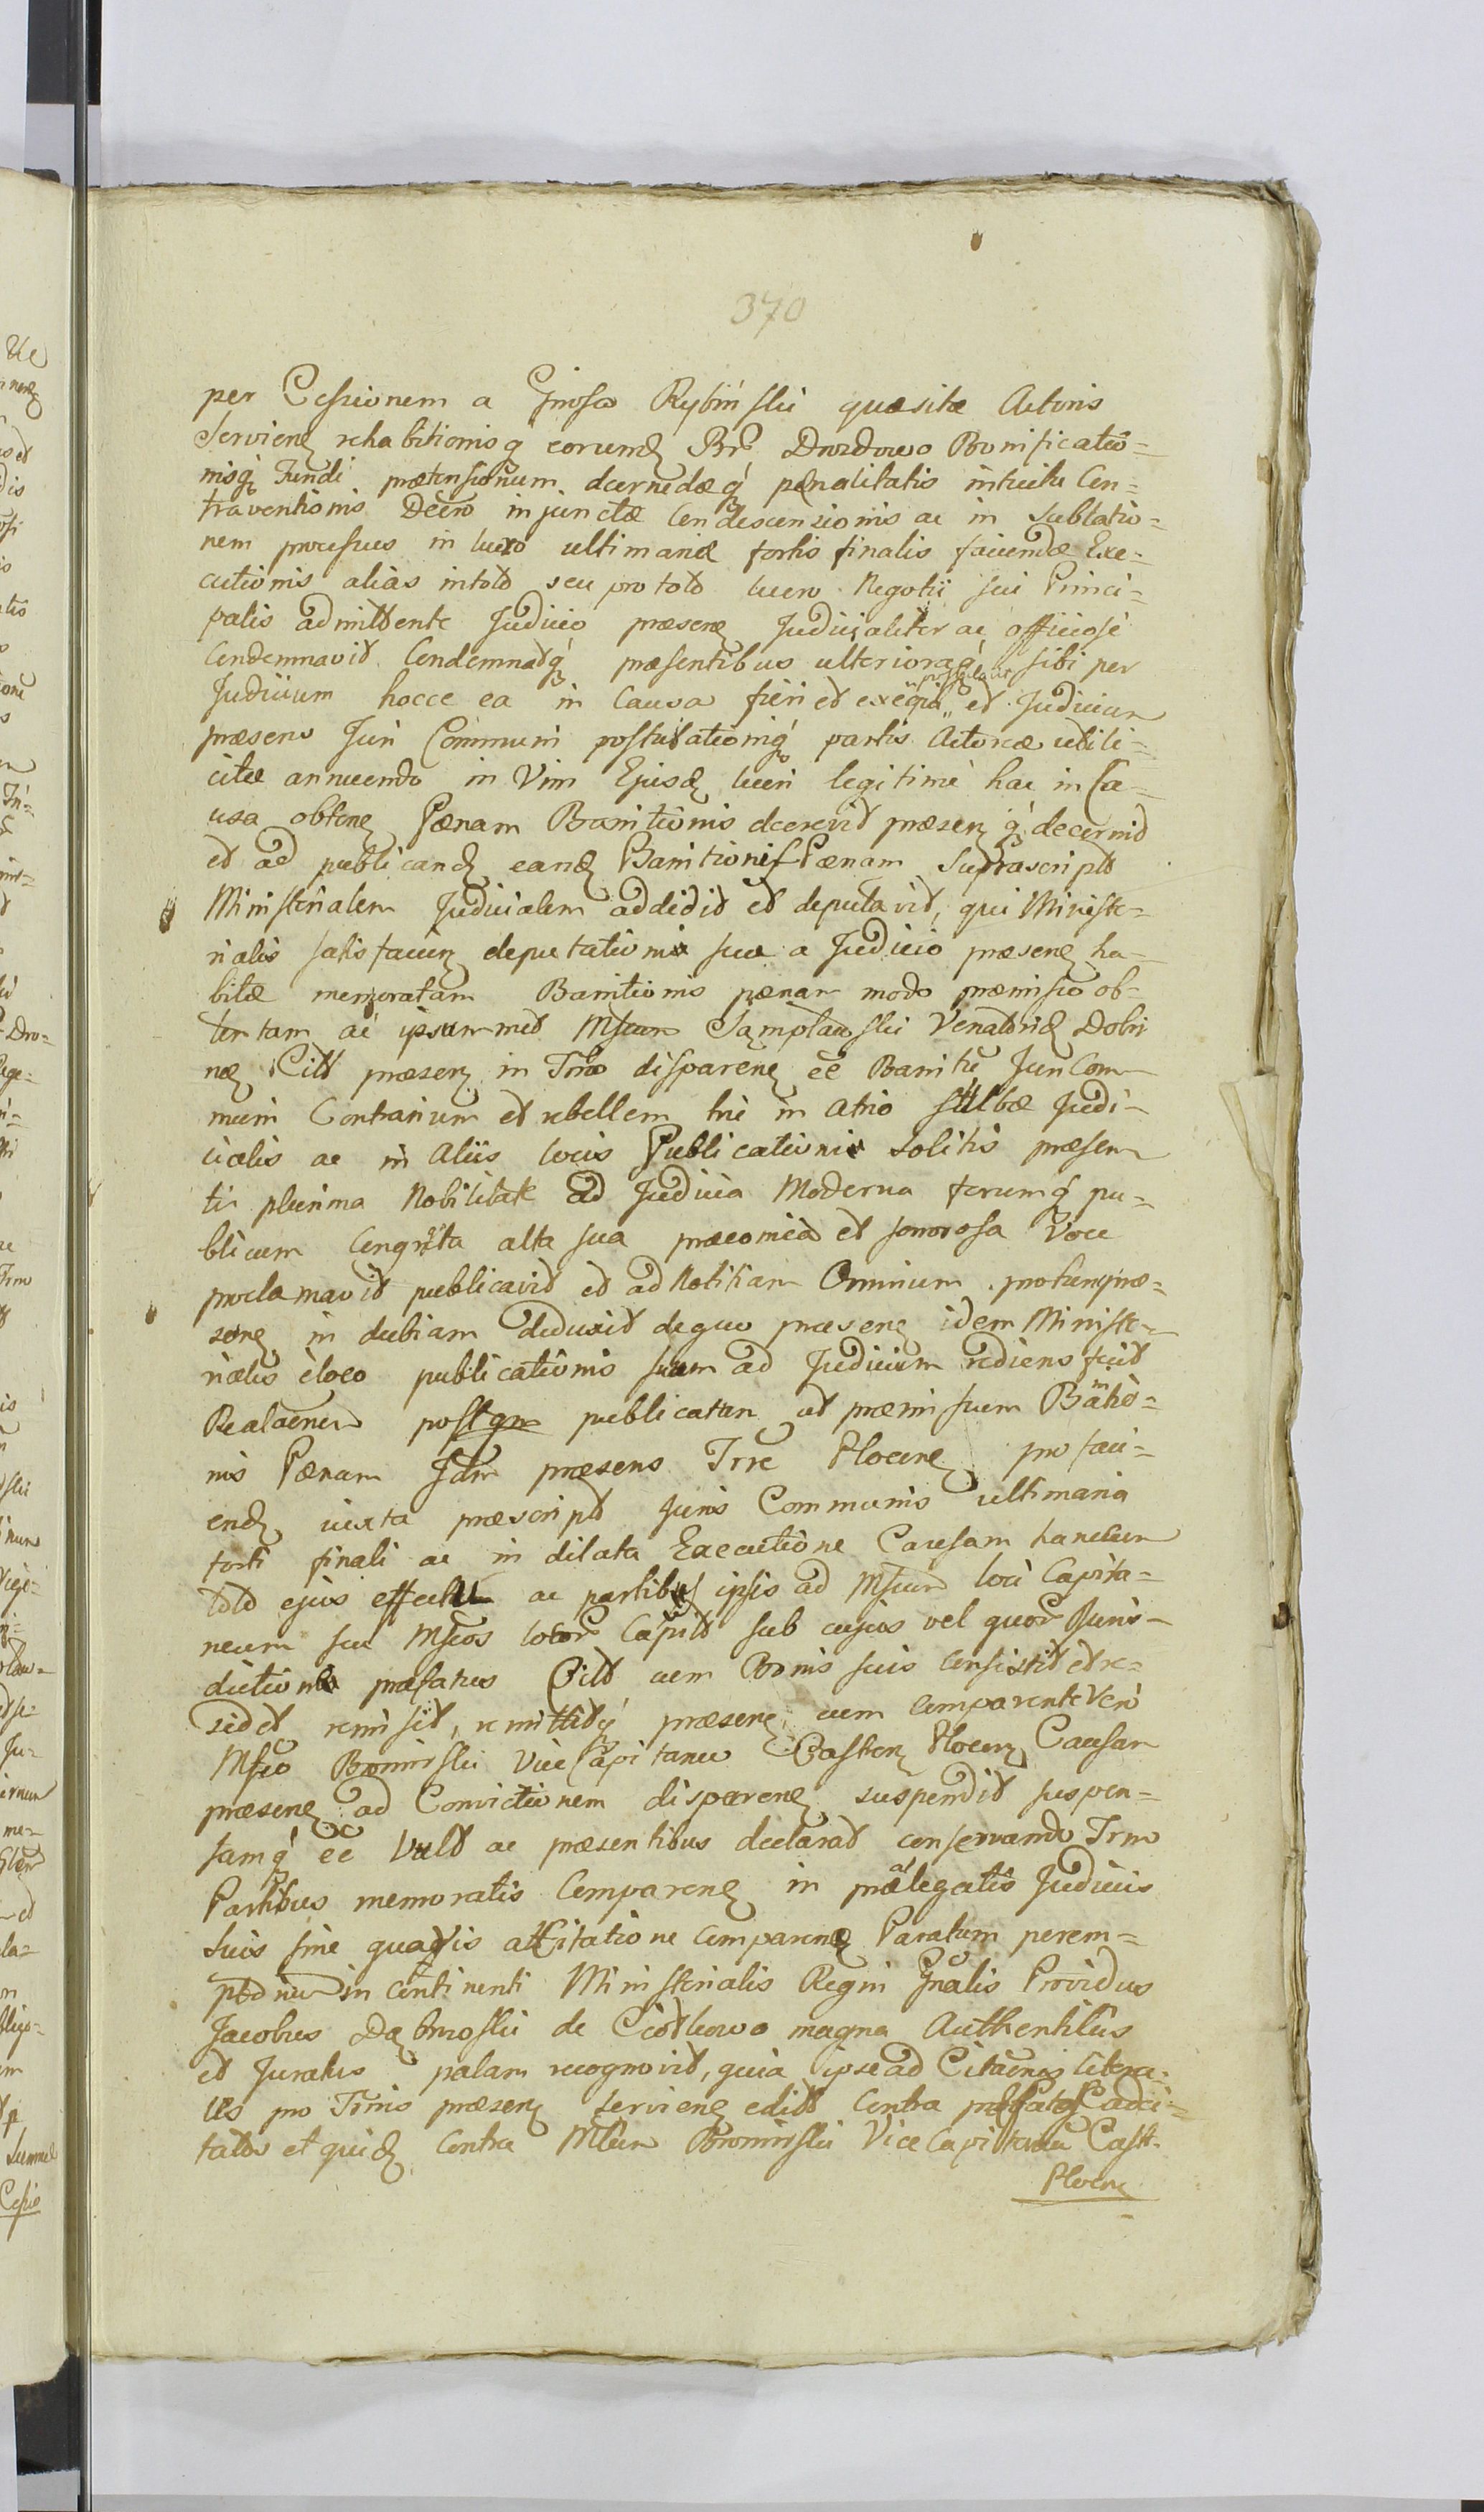 370
per Cessionem a Gnoso Rybinski quæsitæ Actoris
Servien rehabitionisq eorumd Br Drozdowo Bonificatio=
nisq Fundi prætensionum decernedæq pænalitatis intuitu Con=
traventionis Decro injunctæ Condescensionis ac in Sublatio=
nem processus in lucro ultimariæ fortis finalis faciendæ Exe=
cutionis alias in toto seu pro toto lucro Negotii sui Princi=
palis admittente Judicio præsen Judicialiter ac officiose
Condemnavit Condemnatq præsentibus ulterioraq sibi per
Judicium hocce ea in Causa fieri et exequi postulavit et Judicium
præsens Juri Communi postulationiq partis Actoreæ utili=
citæ annuendo in Vim Ejusd lucri legitime hac in Ca=
usa obten Pænam Banitionis decrevit præsen q decernit
et ad publicand eand Banitionis Pænam Suprascript
Ministerialem Judicialem addidit et deputavit, qui Ministe=
rialis satisfacien deputationis suæ a Judicio præsen ha=
bitæ memoratam Banitionis pænam modo præmisso ob=
tentam ac ipsummet Mfcum Samplawski Venatorid Dobri
næ Citt præsen in Trno disparen ee Banitu Juri Com
muni Contrarium et rebellem tri in atrio stubæ Judi=
cialis ac in aliis locis Publicationis solitis præsen
ti plurima Nobilitate ad Judicia Moderna forumq pu=
blicum Congrta alta sua præconica et sonorosa Voce
proclamavit publicavit et ad Notitiam Omnium protunc præ=
sen in dubiam deduxit de quo præsen idem Ministe=
rialis e loco publicationis suum ad Judicium rediens fecit
Realaoner post qm publicatam ut præmissum Banitio=
nis Pænam Jdm præsens Trre Plocen pro faci=
end iuxta præscript Juris Communis ultimaria
forti finali ac in dilata Executione Causam hanc cum
toto ejus effectu ac partibus ipsis ad Mfcum loci Capita=
neum seu Mfcos locor Capit sub cujus vel quor Juris=
dictione præfatus Citt cum Bonis suis Consistit et re=
sidet remisit, remittitq præsen cum comparente Vero
Mfco Bromirski Vice Capitaneo Castren Plocen Causam
præsen ad Convictionem disparen suspendit suspen=
samq ee Vult ac præsentibus declarat conservando Trno
Partibus memoratis Comparen in prælegatis Judiciis
suis sine quavis attitatione Comparend Paratum perem=
ptorium in Continenti Ministerialis Regni Gnalis Providus
Jacobus Dąbrowski de Ciotkowo magna Authenticus
et Juratus palam recognovit, quia ipse ad Citaonis litera=
les pro Trnis præsen servien edit Contra præfatos adci=
tatos et quid Contra Mfcum Bromirski Vice Capitaneu Castr.
Plocen